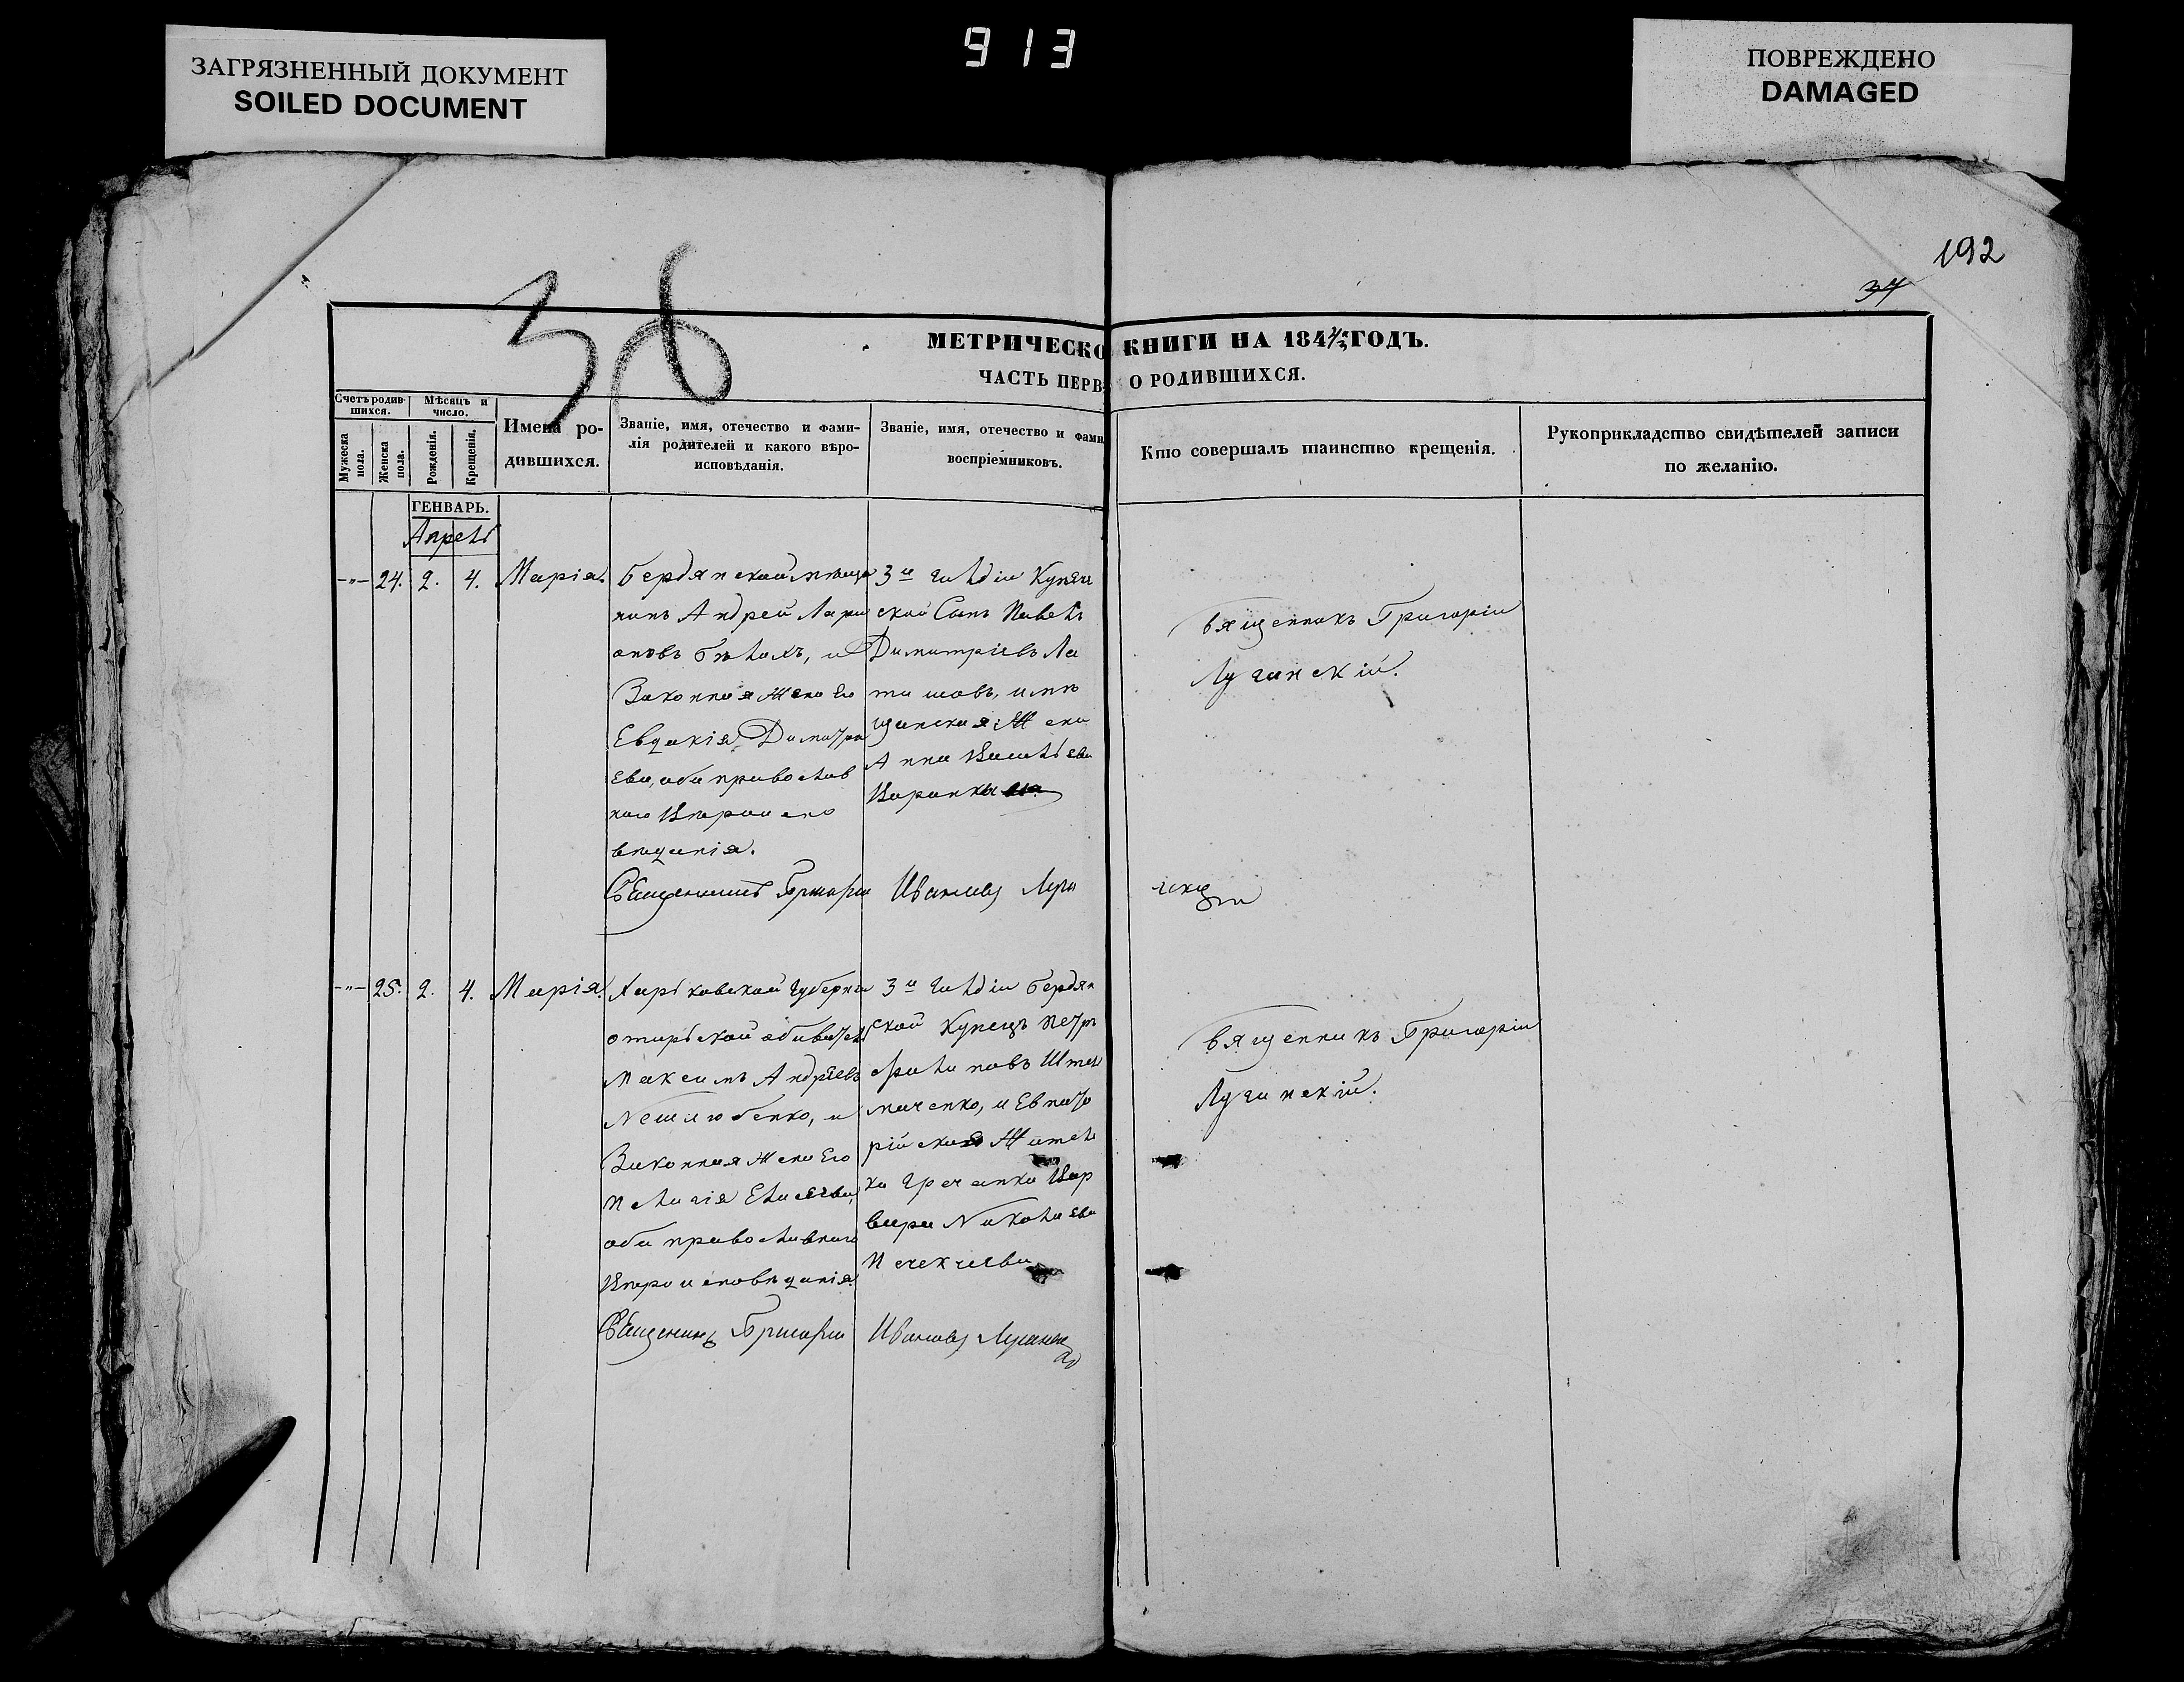 ЗАГРЯЗНЕННЫЙ ДОКУМЕНТ
SOILED DOCUMENT
913
ПОВРЕЖДЕНО
DAMAGED
192
37
36
МЕТРИЧЕСКО КНИГИ НА 184 ГОДЪ.
ЧАСТЬ ПЕРВ О РОДИВШИХСЯ.
Счетъ родив-
шихся.
Мужеска
пола.
Женска
пола.
Мѣсяцъ и
число.
Рожденія.
Крещенія.
Имена ро-
дившихся.
Званіе, имя, отечество и фами-
лія родителей и какого вѣро-
исповѣданія.
Званіе, имя, отечество и фами
воспріемниковъ.
Кто совершалъ таинство крещенія.
Рукоприкладство свидѣтелей записи
по желанію.
ГЕНВАРЬ.
Апрель
-"- 24. 2. 4. Марія.
Бердянской мѣща
нинъ Андрей Лари
оновъ Бѣлохъ, и
Законная Жена Его
Евдокія Димитри
ева, оба православ
наго Вѣроиспо
вѣданія.
3й гильдіи Купече
ской Сынъ Павелъ
Димитріевъ Ла
шовъ, и мѣ
щанская Жена
Анна Васильева
Священникъ Григорій
Лучинскій.
Священникъ Григорій Ивановъ
-"- 25. 2. 4. Марія.
Харьковской Губерніи
обыватель
Максимъ Андреевъ
Нешлюбенко, и
Законная Жена Его
Пелагія Елисеева,
оба православнаго
Вѣроисповѣданія.
3й гильдіи Бердян
ской Купецъ Петръ
Филиповъ Штем
наченко, и Евпато
рійская Житель
ка Гречанка Вар
вара Николаева
Священникъ Григорій
Лучинскій.
Священникъ Григорій Ивановъ